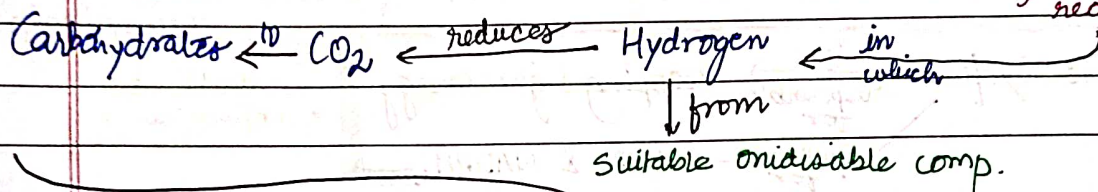 Carbohydrates ← to CO2 ← reduces Hydrogen ← in which
↓ from
Suitable onidisable comp.